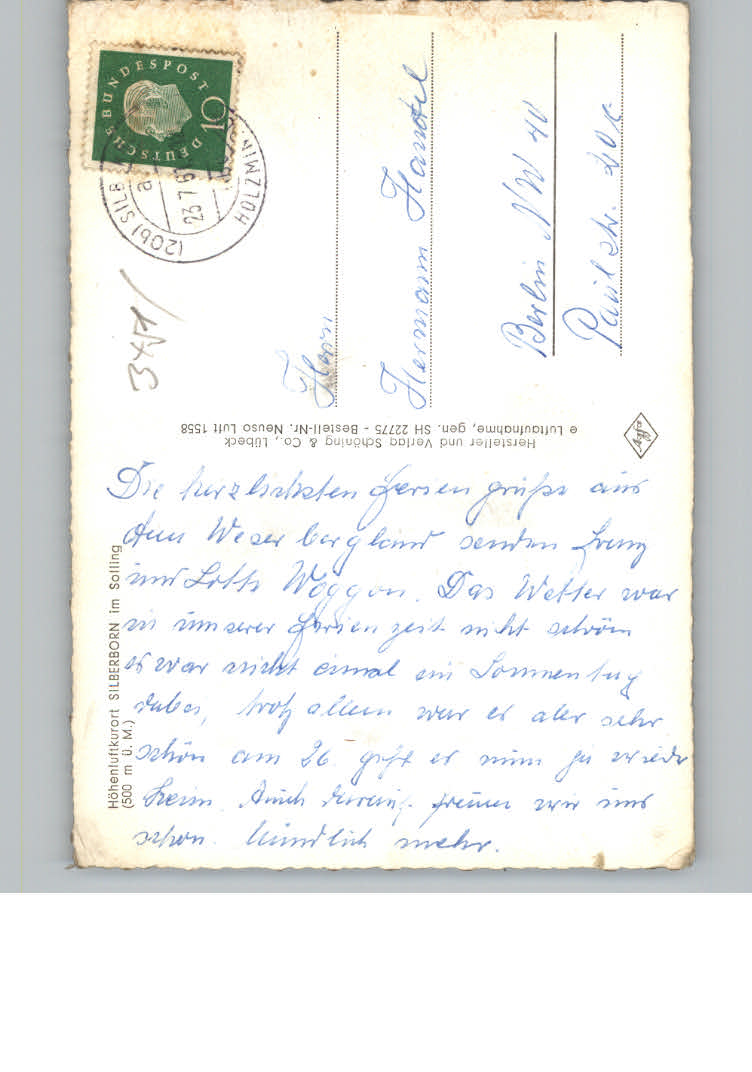 DEUTSCHE BUNDESPOST
10
(20b) SILB
a
23.7.
HOLZMIN
Herrn
Hermann
Berlin NW 40
Paulstr. 20c
Hersteller und Verlag Schöning & Co., Lübeck
e Luftaufnahme, gen. SH 22775 - Bestell-Nr. Neuso Luft 1558
Agfa
Höhenluftkurort SILBERBORN im Solling
(500 m ü. M.)
Die herzlichsten Feriengrüße aus
dem Weserbergland senden Franz
und Lotte Woggon. Das Wetter war
in unserer Ferienzeit nicht schön
es war nicht einmal ein Sonnentag
dabei, trotz allem war es aber sehr
schön am 26. geht es nun ja wieder
heim. Auch darauf freuen wir uns
schon. Mündlich mehr.